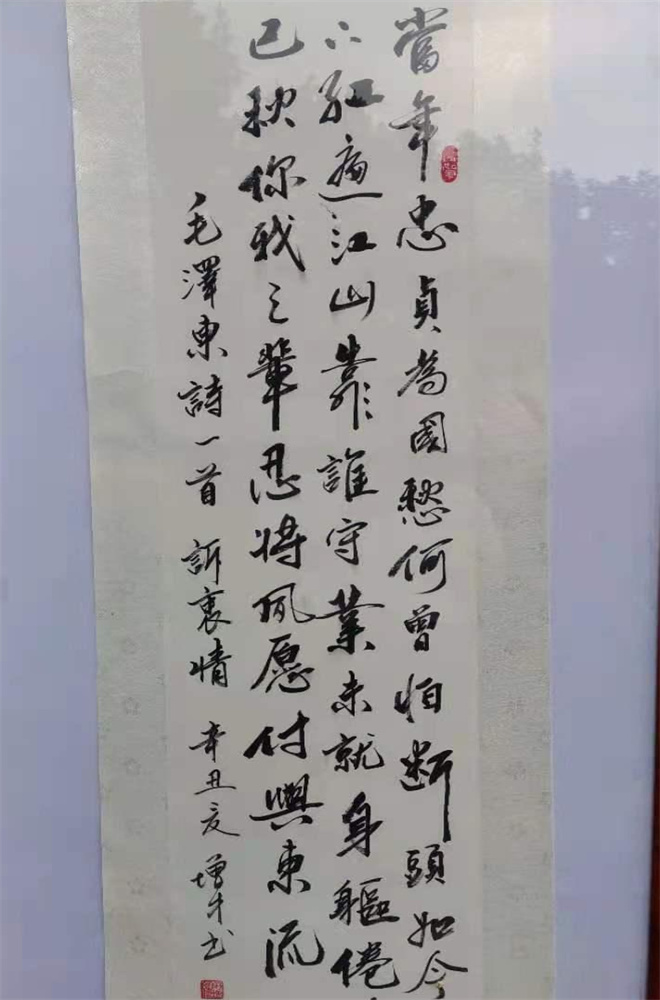 當年忠貞為國愁何曾怕斷頭如今
下红遍江山靠誰守業未就身軀倦
已秋你我之輩忍將夙愿付與東流
毛澤東詩一首 訴衷情 辛丑夏 增才书